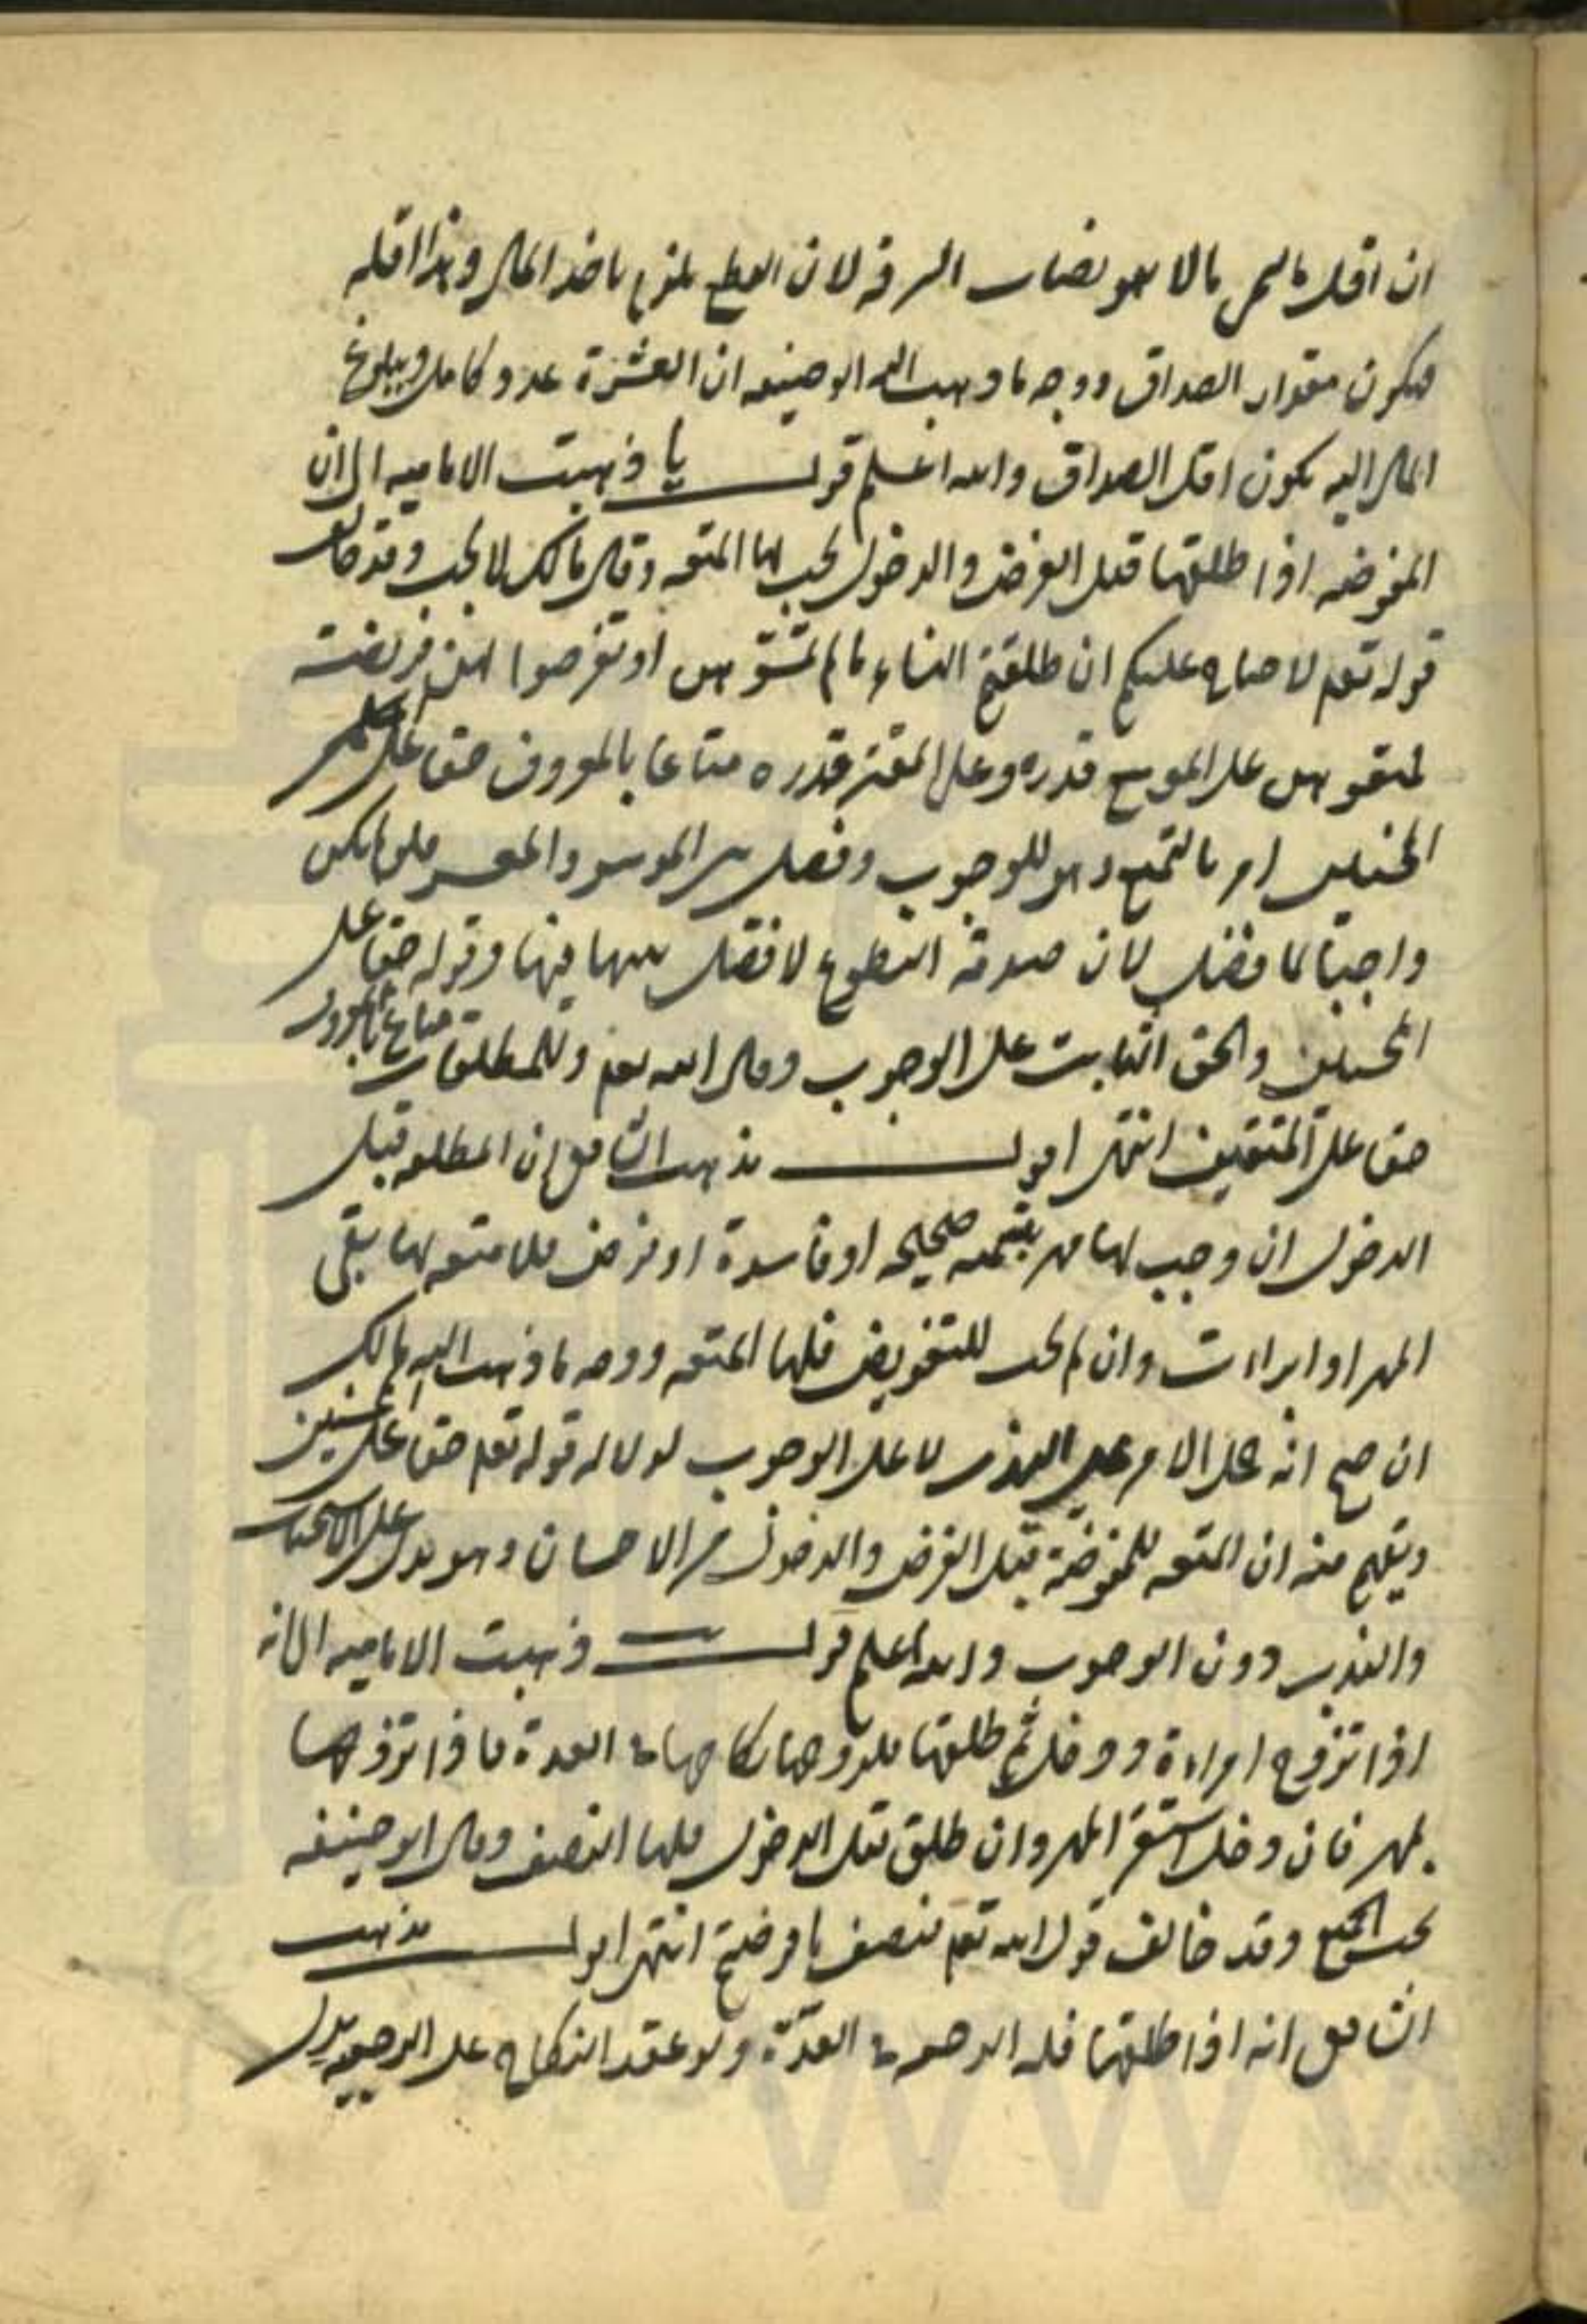 ان اقل ما يسمى مالا هو نصاب السرقة لان القطع يلزم باخذ المال وهذا اقله
فيكون مقدار الصداق ووجه ما ذهب اليه ابو حنيفه ان العشرة عدد كامل وببلوغ
المال اليه يكون اقل الصداق والله اعلم قولـــــه يا ذهبت الاماميه الى ان
المفوضه اذا طلقها قبل الفرض والدخول يجب لها المتعه وقال مالك لا يجب وقد خالف
قوله تعم لا جناح عليكم ان طلقتم النساء ما لم تمسوهن او تفرضوا لهن فريضة
فمتعوهن على الموسع قدره وعلى المقتر قدره متاعا بالمعروف حقا على
المحسنين امر بالتمتع وهو للوجوب وفصل بين الموسر والمعسر فلو لم يكن
واجبا لما فصل لان صدقة التطوع لا فصل بينهما فيها وقوله حقا على
المحسنين والحق الثابت على الوجوب وقال الله تعم وللمطلقات متاع بالمعروف
حقا على المتقين انتهى اقول مذهب الشافعي ان المطلقه قبل
الدخول ان وجب لها مهر بتسميه صحيحه او فاسدة او فرض فلا متعه لها بقى
المهر او ابراءت وان لم يجب للتفويض فلها المتعه ووجه ما ذهب اليه مالك
ان صح انه حمل الامر على الندب لا على الوجوب لدلاله قوله تعم حقا على المحسنين
ويفهم منه ان المتعه للمفوضة قبل الفرض والدخول من الاحسان وهو يدل على الاستحباب
والندب دون الوجوب والله اعلم قولـــــه ذهبت الاماميه الى انه
اذا تزوج امراءة ودخل ثم طلقها فلزوجها نكاحها في العدة فاذا تزوجها
بمهر فان دخل استقر المهر وان طلق قبل الدخول فلها النصف وقال ابو حنيفه
يجب الجميع وقد خالف قول الله تعم فنصف ما فرضتم انتهى اقول مذهب
الشافعي انه اذا طلقها فله الرجعه في العدّة ولو عقد النكاح على الرجعيه بدل